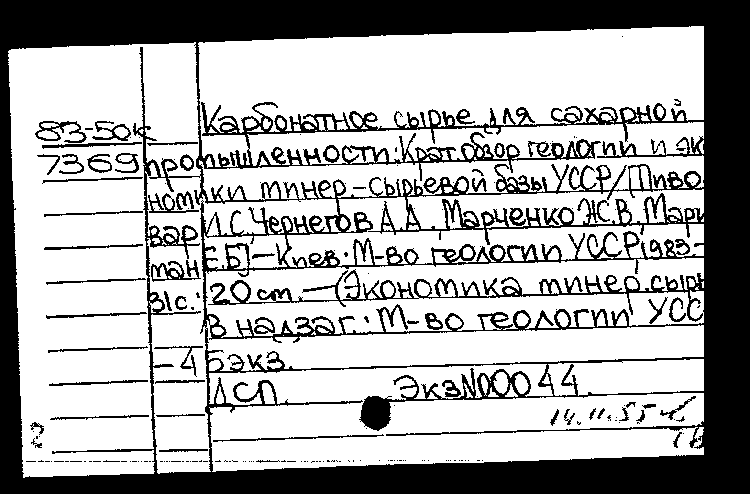 83-50к Карбонатное сырье для сахарной
7369 промышленности: Крат. обзор геологии и эк
номики минер.-сырьевой базы УССР/[Пиво
вар И.С., Чернегов А.А., Марченко Ж.В., Мари
ман Е.Б.]-Киев: М-во геологии УССР, 1983.-
31с.: 20 cm. -(Экономика минер. сырь
В надзаг.: М-во геологии УСС
-4 Бэкз.
ДСП. Экз N00044.
14.11.55
2